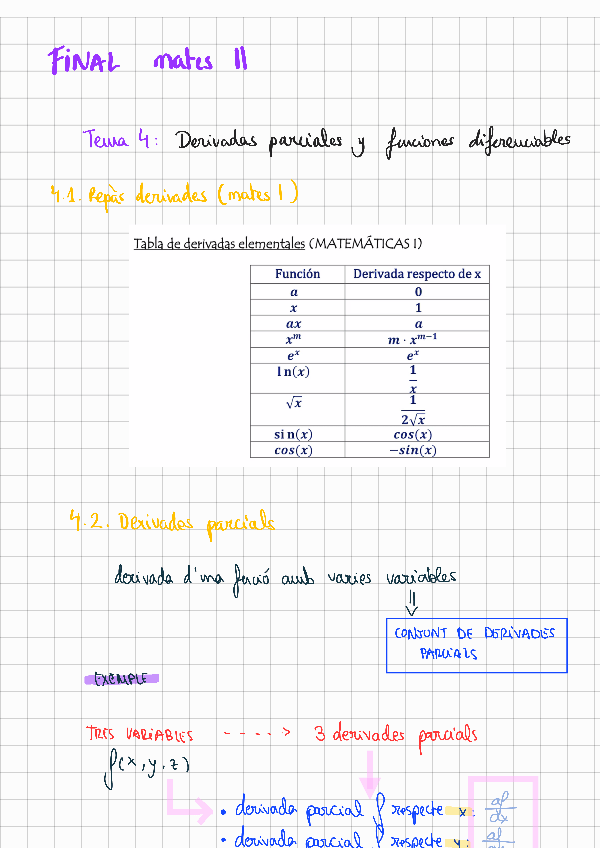 FINAL mates II
Tema 4: Derivadas parciales y funciones diferenciables
4.1. Repàs derivades (mates I)
Tabla de derivadas elementales (MATEMÁTICAS I)
Función Derivada respecto de x
a 0
x 1
ax a
x^m m · x^{m−1}
e^x e^x
ln(x) 1/x
√x 1/(2√x)
sin(x) cos(x)
cos(x) −sin(x)
4.2. Derivades parcials
derivada d'una funció amb varies variables
CONJUNT DE DERIVADES
PARCIALS
EXEMPLE
TRES VARIABLES ----> 3 derivades parcials
f(x,y,z)
• derivada parcial f respecte x: ∂f/∂x
• derivada parcial f respecte y: